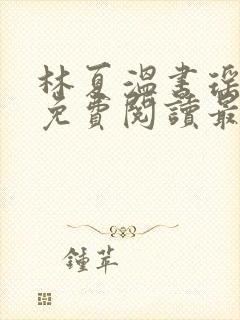 林夏溫書瑶
免費閱讀最
鍾苹